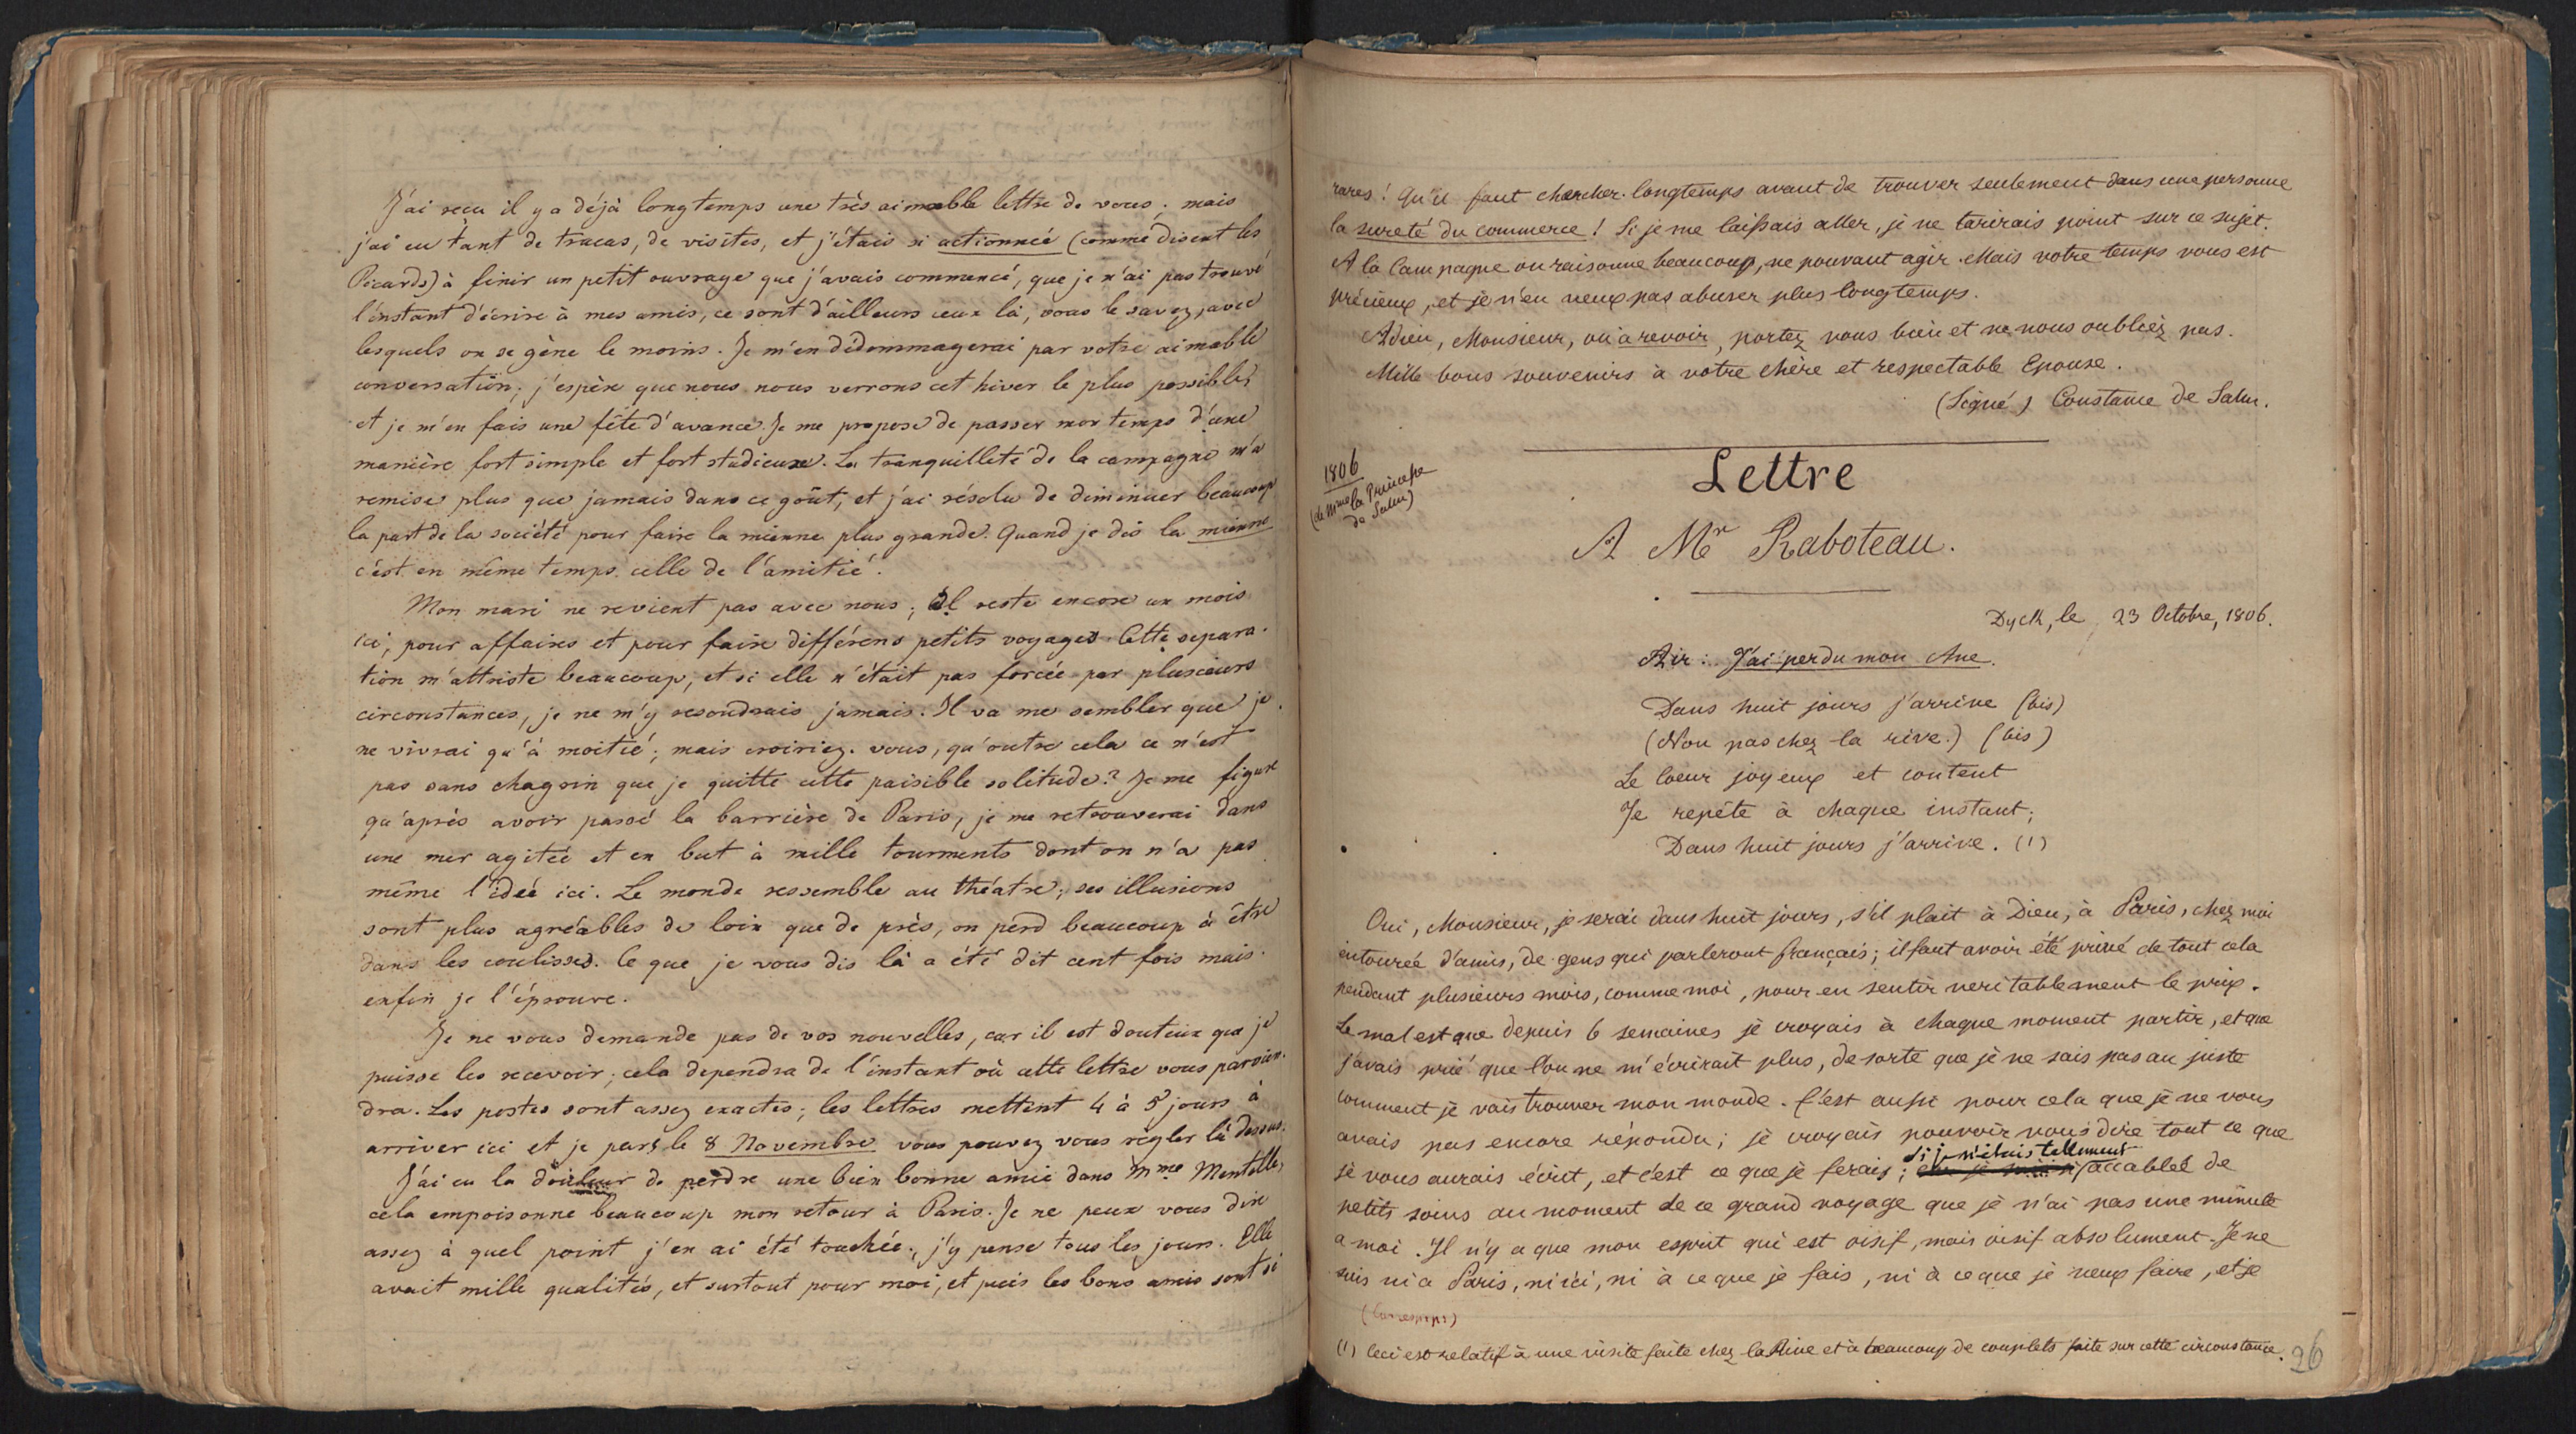 J'ai reçu il y a déjà longtemps une très aimable lettre de vous; mais
j'ai eu tant de tracas, de visites, et j'étais si actionnée (comme disent les
Picards) à finir un petit ouvrage que j'avais commencé, que je n'ai pas trouvé
l'instant d'écrire à mes amis, ce sont d'ailleurs ceux là, vous le savez, avec
lesquels on se gène le moins. Je m'en dédommagerai par votre aimable
conversation; j'espère que nous nous verrons cet hiver le plus possible,
et je m'en fais une fête d'avance. Je me propose de passer mon temps d'une
manière fort simple et fort studieuse. La tranquillité de la campagne m'a
remise plus que jamais dans ce goût, et j'ai résolu de diminuer beaucoup
la part de la société pour faire la mienne plus grande. Quand je dis la mienne
c'est en même temps celle de l'amitié.
Mon mari ne revient pas avec nous; il reste encore un mois
ici, pour affaires et pour faire différens petits voyages. Cette separa-
tion m'attriste beaucoup, et si elle n'était pas forcée par plusieurs
circonstances, je ne m'y resoudrais jamais. Il va me sembler que je
ne vivrai qu'à moitié; mais croiriez-vous, qu'outre cela ce n'est
pas sans chagrin que je quitte cette paisible solitude? Je me figure
qu'après avoir passé la barrière de Paris, je me retrouverai dans
une mer agitée et en but à mille tourments dont on n'a pas
même l'idée ici. Le monde ressemble au théatre; ses illusions
sont plus agréables de loin que de près, on perd beaucoup à être
dans les coulisses. Ce que je vous dis là a été dit cent fois mais
enfin je l'éprouve.
Je ne vous demande pas de vos nouvelles, car il est douteux que je
puisse les recevoir; cela dependra de l'instant où cette lettre vous parvien-
dra. Les postes sont assez exactes; les lettres mettent 4 à 5 jours à
arriver ici et je pars le 8 Novembre vous pouvez vous règler là dessus.
J'ai eu la douleur de perdre une bien bonne amie dans Mme Mentelle,
cela empoisonne beaucoup mon retour à Paris. Je ne peux vous dire
assez à quel point j'en ai été touchée; j'y pense tous les jours. Elle
avait mille qualités, et surtout pour moi, et puis les bons amis sont si
rares! Qu'il faut chercher longtemps avant de trouver seulement dans une personne
la sureté du commerce! Si je me laissais aller, je ne tarirais point sur ce sujet.
A la Campagne on raisonne beaucoup, ne pouvant agir. Mais votre temps vous est
précieux, et je n'en veux pas abuser plus longtemps.
Adieu, Monsieur, ou à revoir, portez vous bien et ne nous oubliez pas.
Mille bons souvenirs à votre chère et respectable Epouse.
(Signé) Constance de Salm.
1806
(de Mme la Princesse
de Salm)
Lettre
A Mr Raboteau.
Dyck, le 23 Octobre, 1806.
Air: J'ai perdu mon Ane.
Dans huit jours j'arrive (bis)
(Non pas chez la rive.) (bis)
Le Coeur joyeux et content
Je repète à chaque instant;
Dans huit jours j'arrive. (1)
Oui, Monsieur, je serai dans huit jours, s'il plait à Dieu, à Paris, chez moi
entourée d'amis, de gens qui parleront français; il faut avoir été privé de tout cela
pendant plusieurs mois, comme moi, pour en sentir veritablement le prix.
Le mal est que depuis 6 semaines je croyais à chaque moment partir, et que
j'avais prié que l'on ne m'écrivait plus, de sorte que je ne sais pas au juste
comment je vais trouver mon monde. C'est aussi pour cela que je ne vous
avais pas encore répondu; je croyais pouvoir vous dire tout ce que
je vous aurais écrit, et c'est ce que je ferais; si je n'étais tellement accablée de
petits soins au moment de ce grand voyage que je n'ai pas une minute
a moi. Il n'y a que mon esprit qui est oisif, mais oisif absolument. Je ne
suis ni a Paris, ni ici, ni à ce que je fais, ni à ce que je veux faire, et je
(1) Ceci est relatif à une visite faite chez la Rive et à beaucoup de couplets faits sur cette circonstance.
26